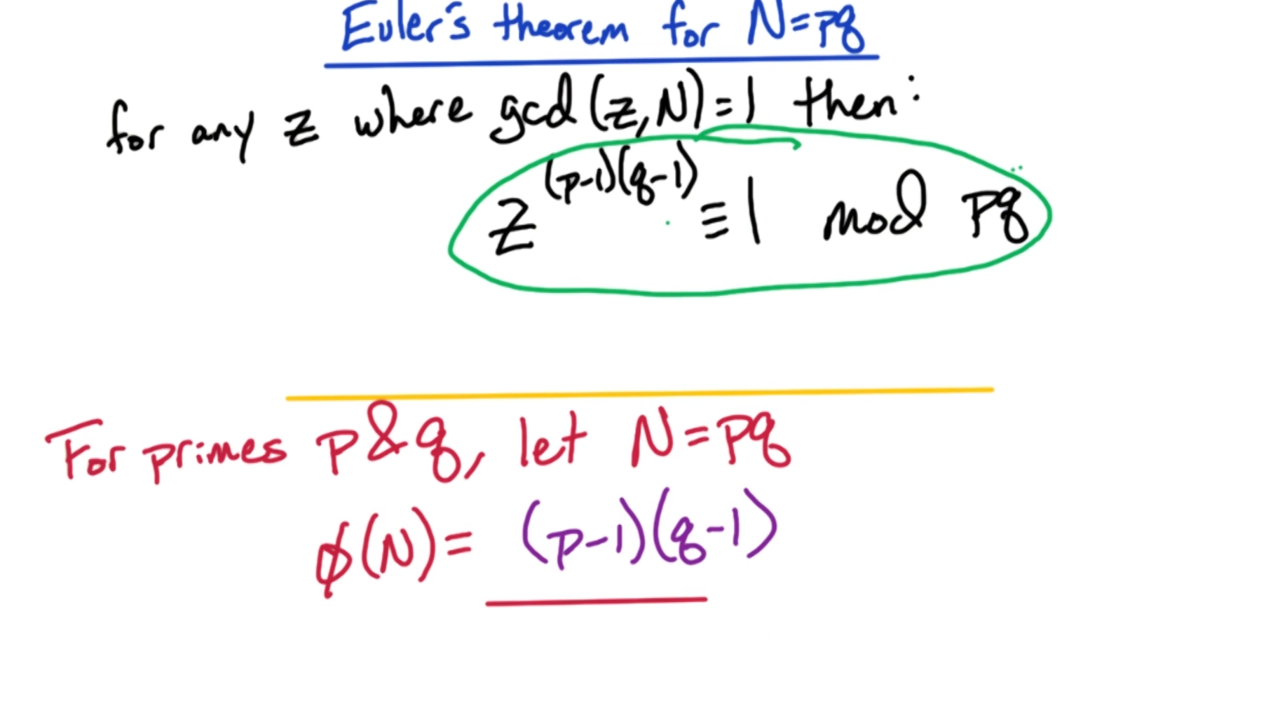 Euler's theorem for N=pq
for any z where gcd(z,N)=1 then:
z^(p-1)(q-1) ≡ 1 mod pq
For primes p&q, let N=pq
ϕ(N)= (p-1)(q-1)